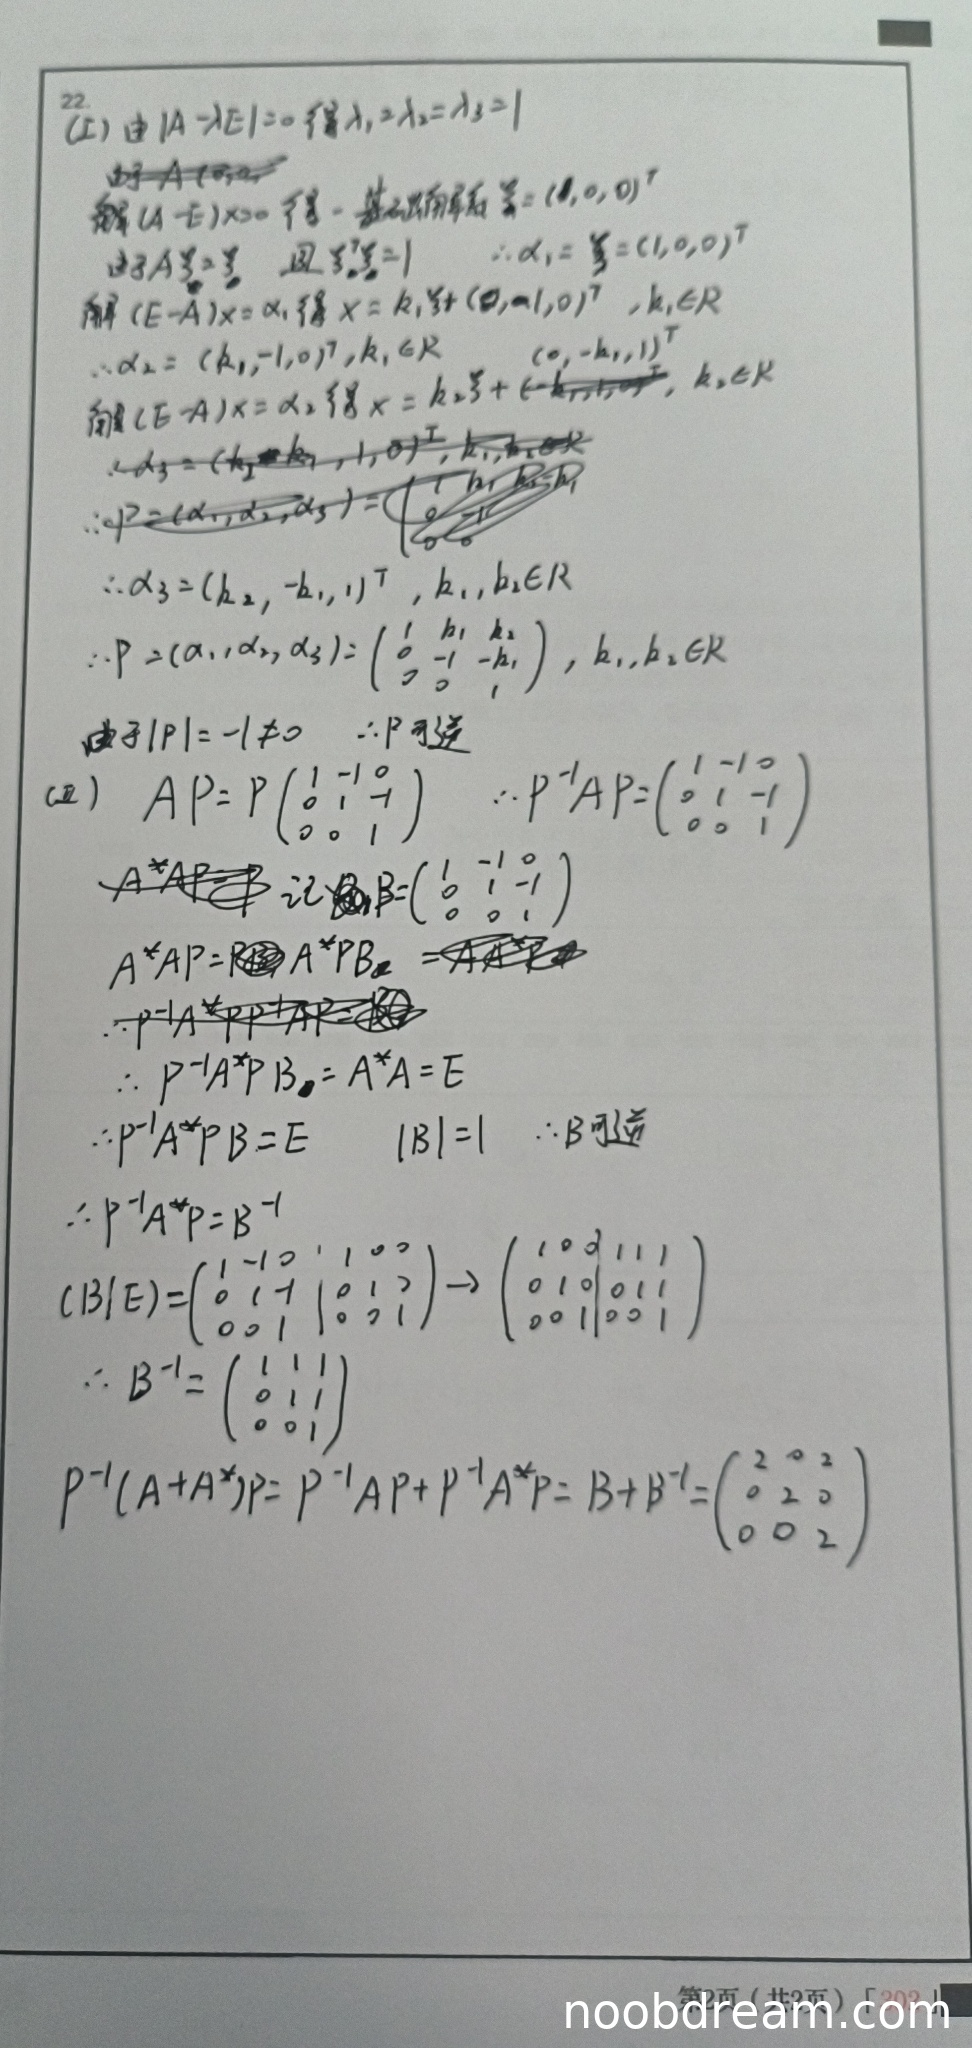 22.
(I) 由|A-λE|=0 得λ₁=λ₂=λ₃=1
解(A-E)x=0 得一基础解系ξ=(1,0,0)ᵀ
由于Aξ=ξ 且ξᵀξ=1 ∴α₁=ξ=(1,0,0)ᵀ
解(E-A)x=α₁得 x=k₁ξ+(0,-1,0)ᵀ,k₁∈R
∴α₂=(k₁,-1,0)ᵀ,k₁∈R
解(E-A)x=α₂得x=k₂ξ+(0,-k₁,1)ᵀ,k₂∈R
∴α₃=(k₂,-k₁,1)ᵀ,k₁,k₂∈R
∴P=(α₁,α₂,α₃)=(1 k₁ k₂
0 -1 -k₁
0 0 1),k₁,k₂∈R
由于|P|=-1≠0 ∴P可逆
(II) AP=P(1 -1 0
0 1 -1
0 0 1) ∴P⁻¹AP=(1 -1 0
0 1 -1
0 0 1)
记 B=(1 -1 0
0 1 -1
0 0 1)
A*AP=A*PB
∴P⁻¹A*PB=A*A=E
∴P⁻¹A*PB=E |B|=1 ∴B可逆
∴P⁻¹A*P=B⁻¹
(B|E)=(1 -1 0 | 1 0 0
0 1 -1 | 0 1 0
0 0 1 | 0 0 1)→(1 0 0 | 1 1 1
0 1 0 | 0 1 1
0 0 1 | 0 0 1)
∴B⁻¹=(1 1 1
0 1 1
0 0 1)
P⁻¹(A+A*)P=P⁻¹AP+P⁻¹A*P=B+B⁻¹=(2 0 2
0 2 0
0 0 2)
第2页(共2页)「303」
noobdream.com